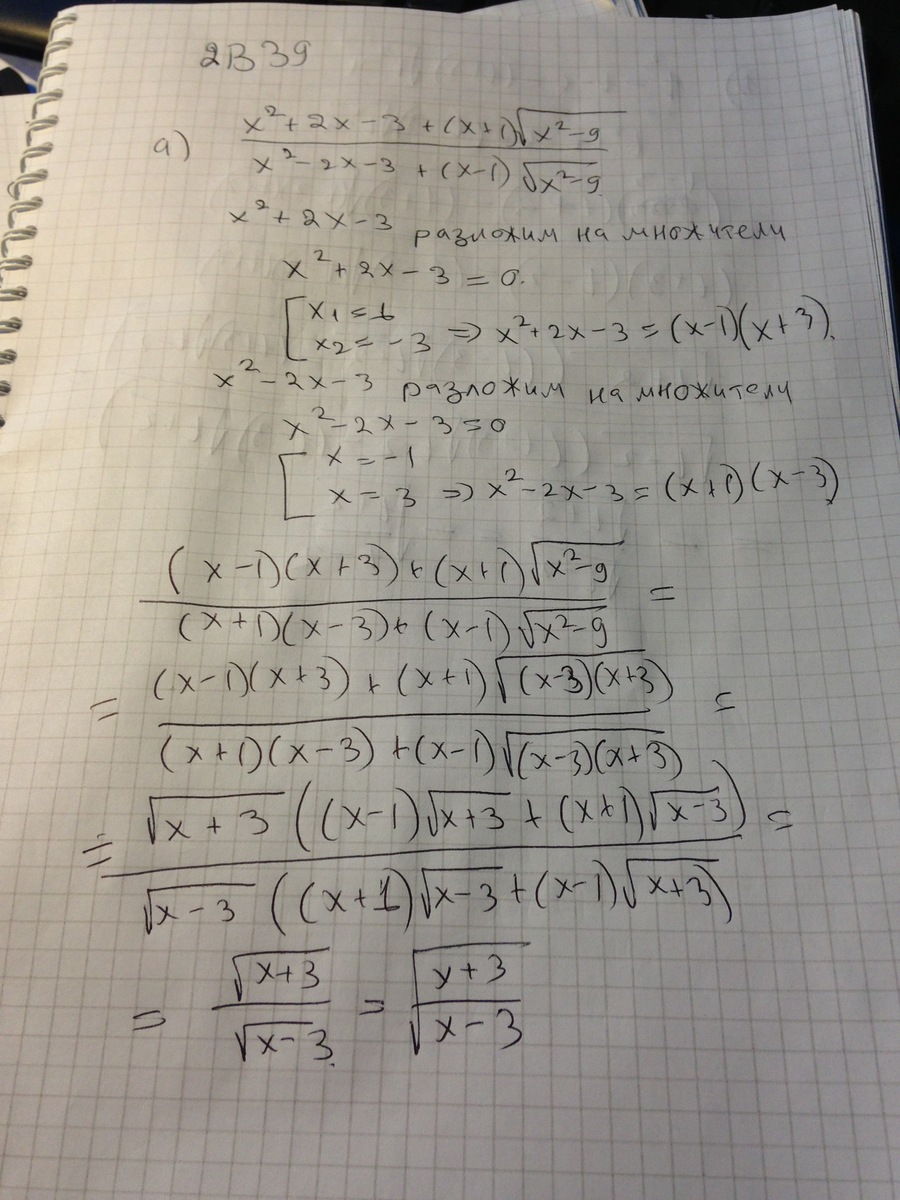 2В39
а) (x² + 2x − 3 + (x+1)√(x² − 9)) / (x² − 2x − 3 + (x−1)√(x² − 9))
x² + 2x − 3 разложим на множители
x² + 2x − 3 = 0.
[ x1 = 1
x2 = −3 ⇒ x² + 2x − 3 = (x−1)(x+3).
x² − 2x − 3 разложим на множители
x² − 2x − 3 = 0
[ x = −1
x = 3 ⇒ x² − 2x − 3 = (x+1)(x−3)
((x−1)(x+3) + (x+1)√(x² − 9)) / ((x+1)(x−3) + (x−1)√(x² − 9)) =
= ((x−1)(x+3) + (x+1)√((x−3)(x+3))) / ((x+1)(x−3) + (x−1)√((x−3)(x+3))) =
= (√(x+3) ((x−1)√(x+3) + (x+1)√(x−3))) / (√(x−3) ((x+1)√(x−3) + (x−1)√(x+3))) =
= √(x+3) / √(x−3) = √((x+3) / (x−3))